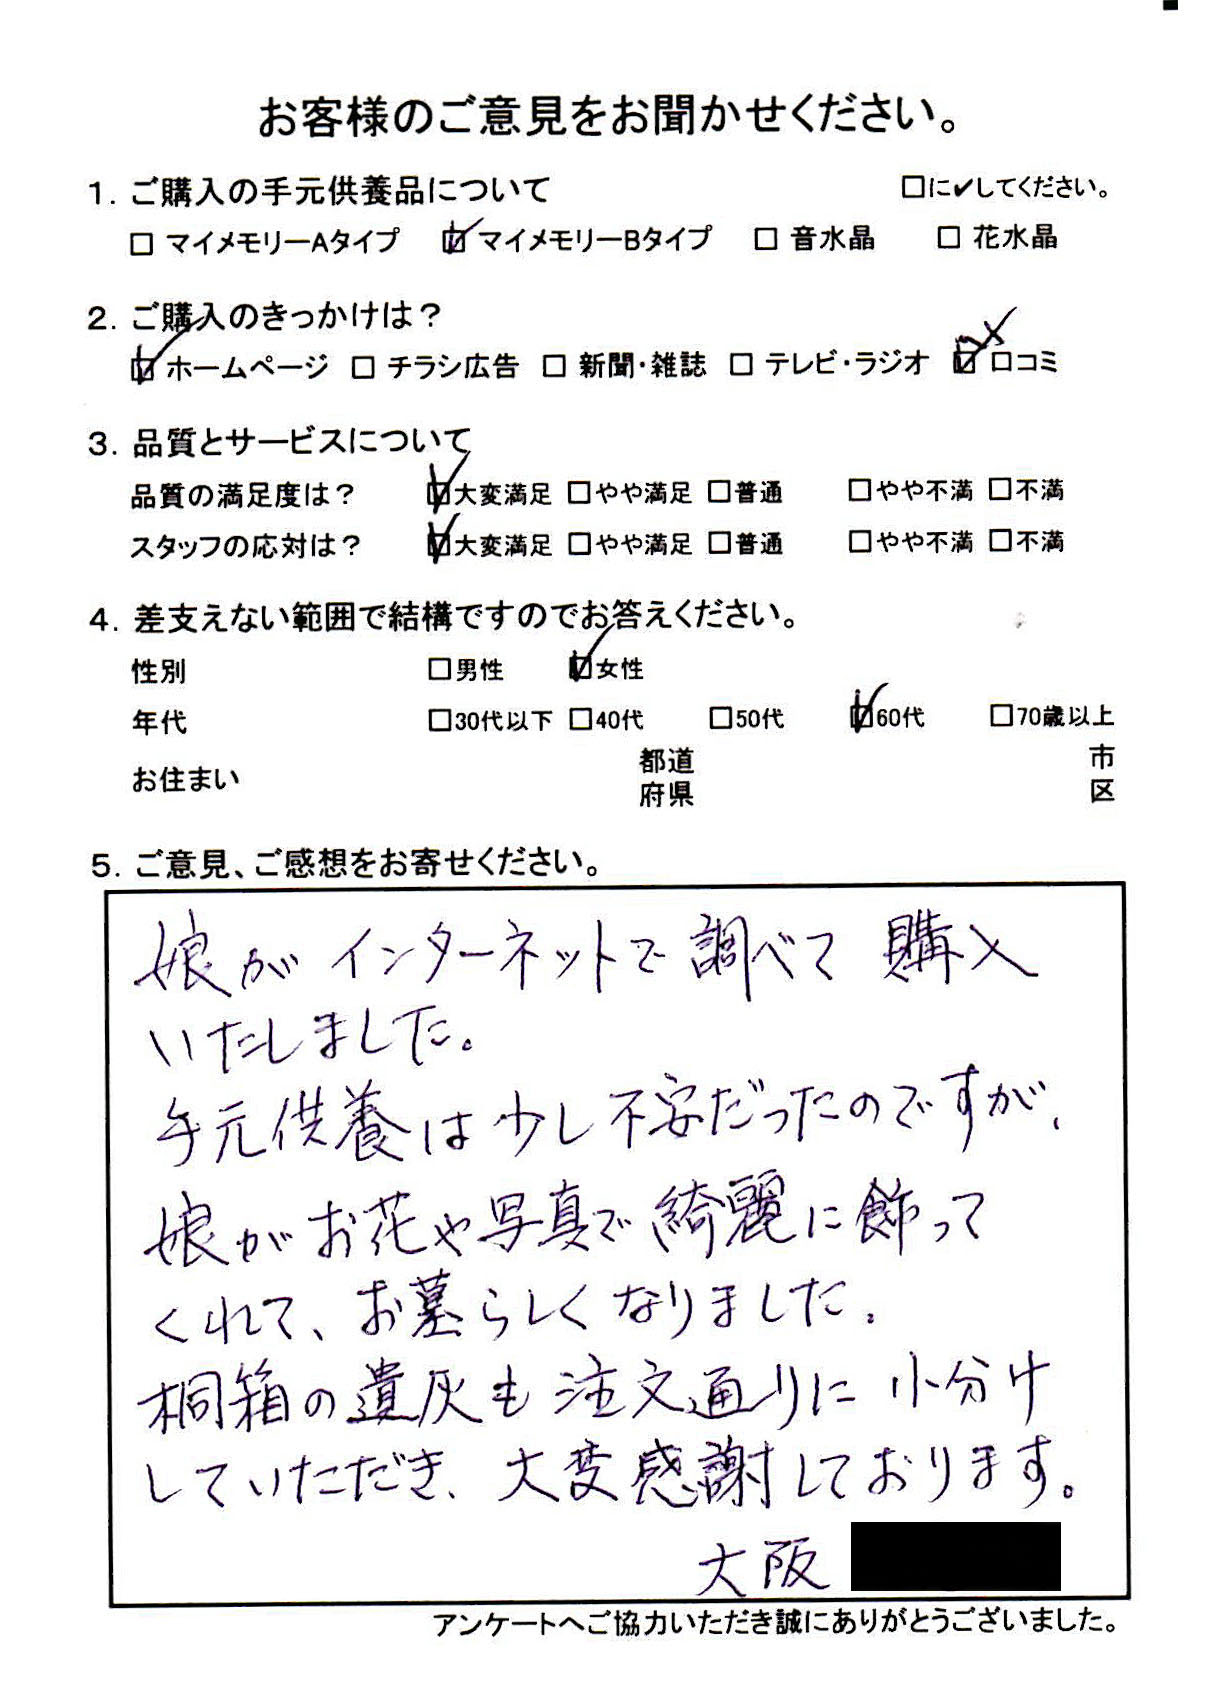 お客様のご意見をお聞かせください。
1. ご購入の手元供養品について □に✔してください。
□ マイメモリーAタイプ ☑ マイメモリーBタイプ □ 音水晶 □ 花水晶
2. ご購入のきっかけは?
☑ ホームページ □ チラシ広告 □ 新聞・雑誌 □ テレビ・ラジオ ☑ 口コミ
3. 品質とサービスについて
品質の満足度は? ☑大変満足 □やや満足 □普通 □やや不満 □不満
スタッフの応対は? ☑大変満足 □やや満足 □普通 □やや不満 □不満
4. 差支えない範囲で結構ですのでお答えください。
性別 □男性 ☑女性
年代 □30代以下 □40代 □50代 ☑60代 □70歳以上
お住まい 都道府県 市区
5. ご意見、ご感想をお寄せください。
娘がインターネットで調べて購入
いたしました。
手元供養は少し不安だったのですが、
娘がお花や写真で綺麗に飾って
くれて、お墓らしくなりました。
桐箱の遺灰も注文通りに小分け
していただき、大変感謝しております。
大阪
アンケートへご協力いただき誠にありがとうございました。